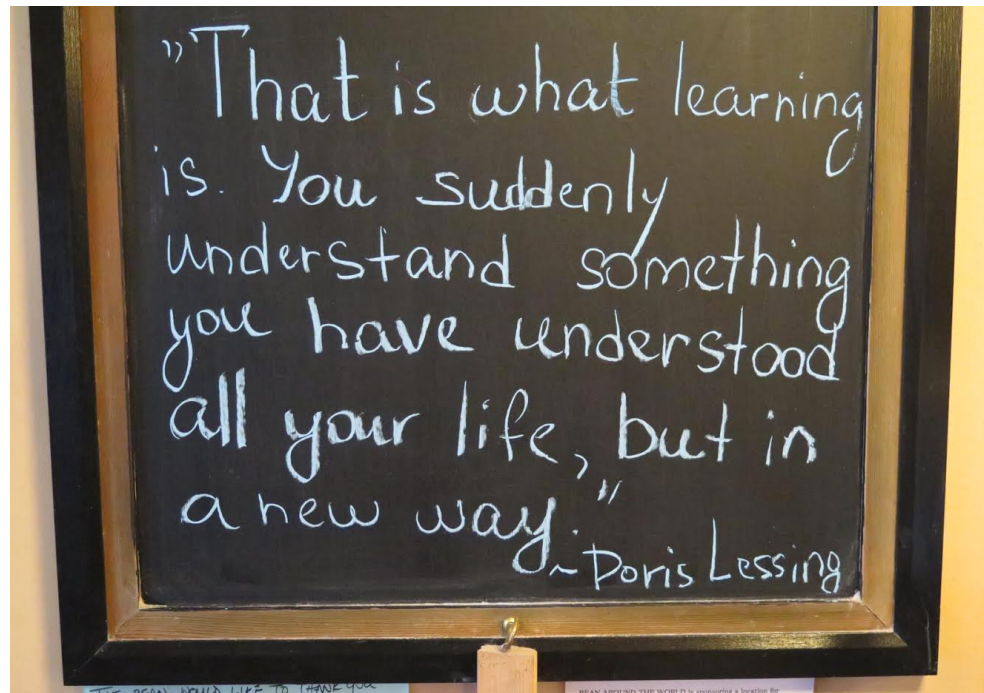 "That is what learning
is. You suddenly
understand something
you have understood
all your life, but in
a new way."
~ Doris Lessing
THE BEAN WOULD LIKE TO THANK YOU
BEAN AROUND THE WORLD is sponsoring a location for